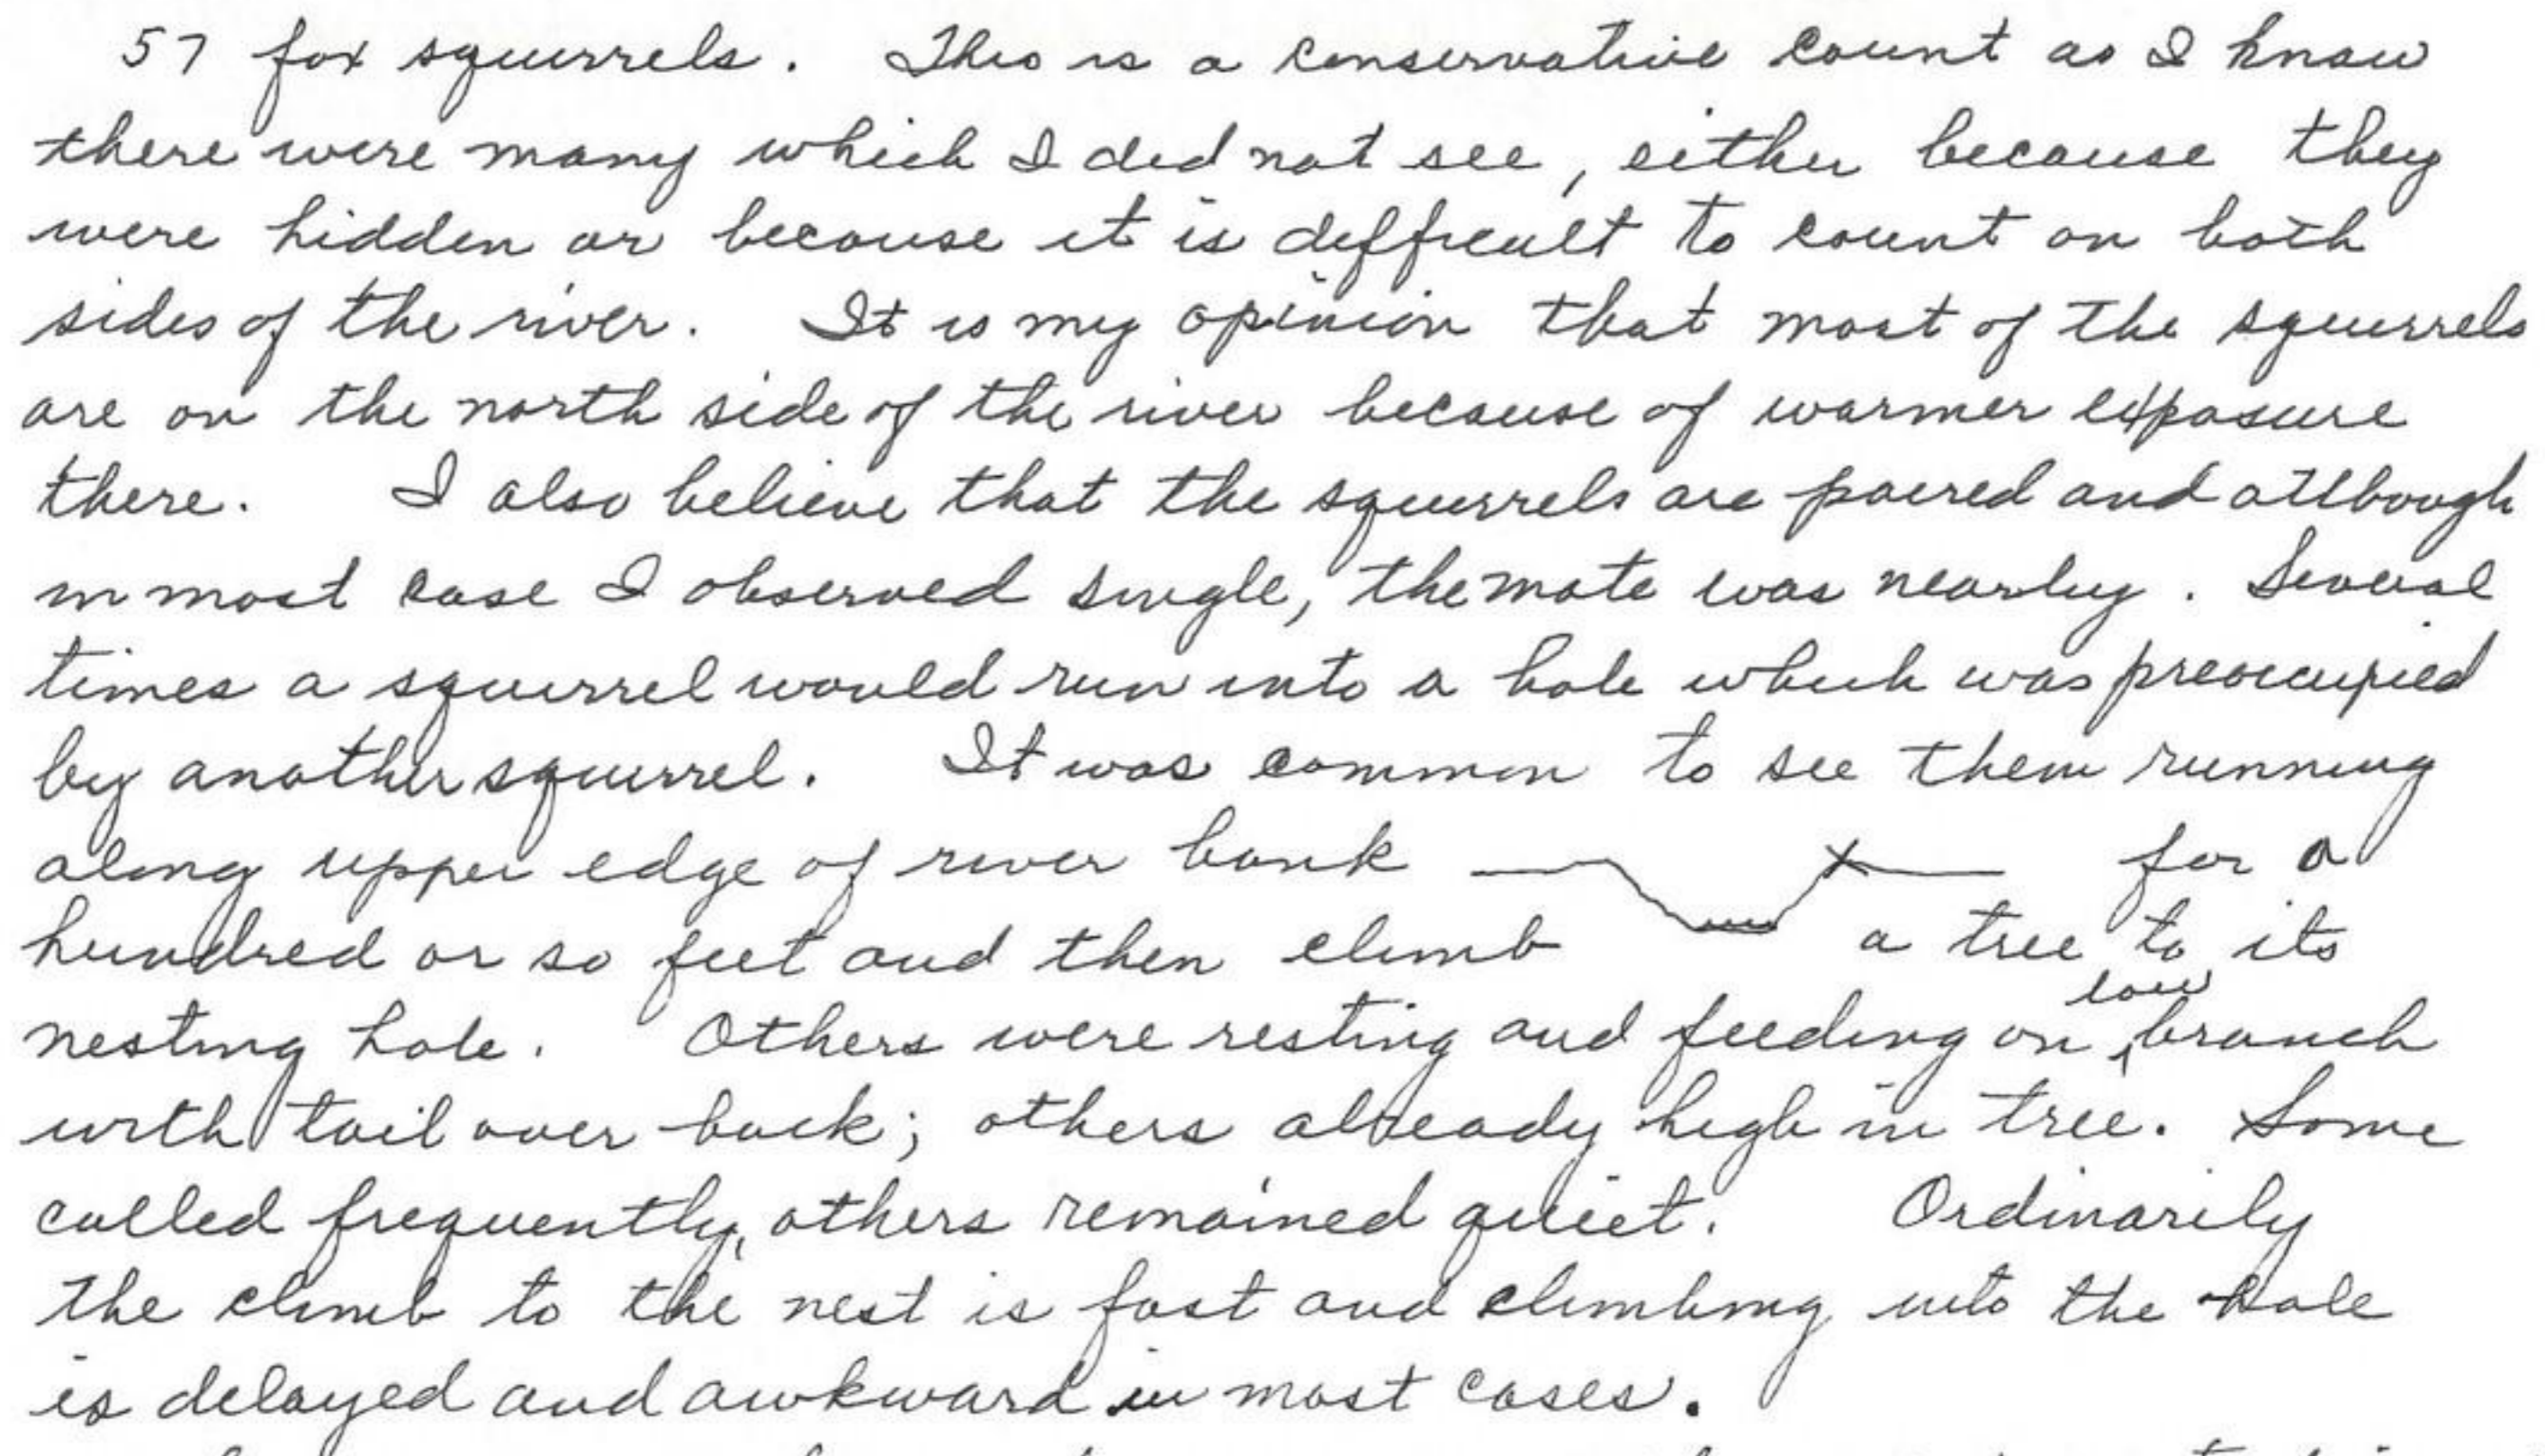 57 fox squirrels. This is a conservative count as I know
there were many which I did not see, either because they
were hidden or because it is difficult to count on both
sides of the river. It is my opinion that most of the squirrels
are on the north side of the river because of warmer exposure
there. I also believe that the squirrels are paired and although
in most case I observed single, the mate was nearby. Several
times a squirrel would run into a hole which was preoccupied
by another squirrel. It was common to see them running
along upper edge of river bank for a
hundred or so feet and then climb a tree to its
low
nesting hole. Others were resting and feeding on branch
with tail over back; others already high in tree. Some
called frequently, others remained quiet. Ordinarily
the climb to the nest is fast and climbing into the hole
is delayed and awkward in most cases.